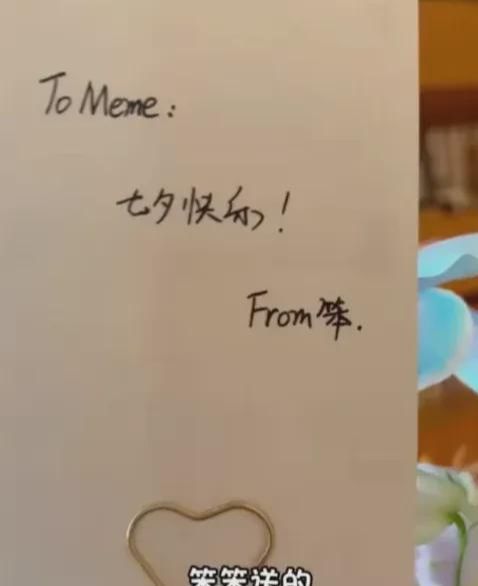 To Meme:
七夕快乐!
From 笨.
笨笨送的